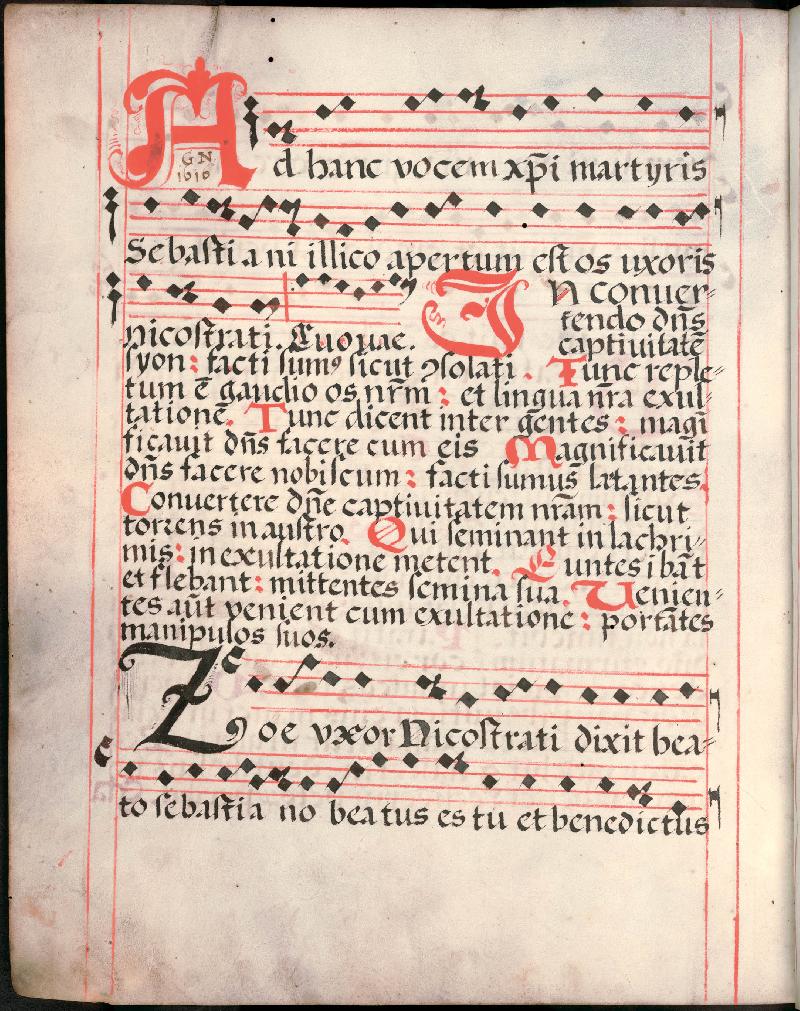 A
GN
1616
d hanc vocem xp̄i martyris
Sebasti a ni illico apertum est os uxoris
nicostrati. Euouae.
In conuer⸗
tendo dn̄s
captiuitatē
syon: facti sumꝰ sicut ꝯsolati. Tunc reple⸗
tum ē gaudio os nr̄m: et lingua nr̄a exul⸗
tatione. Tunc dicent inter gentes: magi
ficauit dn̄s facere cum eis Magnificauit
dn̄s facere nobiscum: facti sumus lætantes.
Conuertere dn̄e captiuitatem nr̄am: sicut
torrens in austro. Qui seminant in lachri⸗
mis: in exultatione metent. Euntes ibāt
et flebant: mittentes semina sua. Uenien⸗
tes aūt venient cum exultatione: portātes
manipulos suos.
Zoe vxor Nicostrati dixit bea⸗
to sebastia no beatus es tu et benedictus